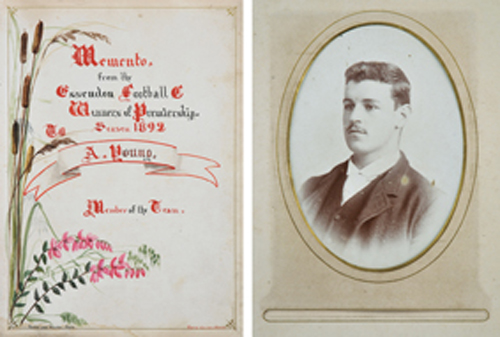 Memento.
from the
Essendon Football C
Winners of Premiership.
Season 1892
To
A. Young.
Member of the Team.